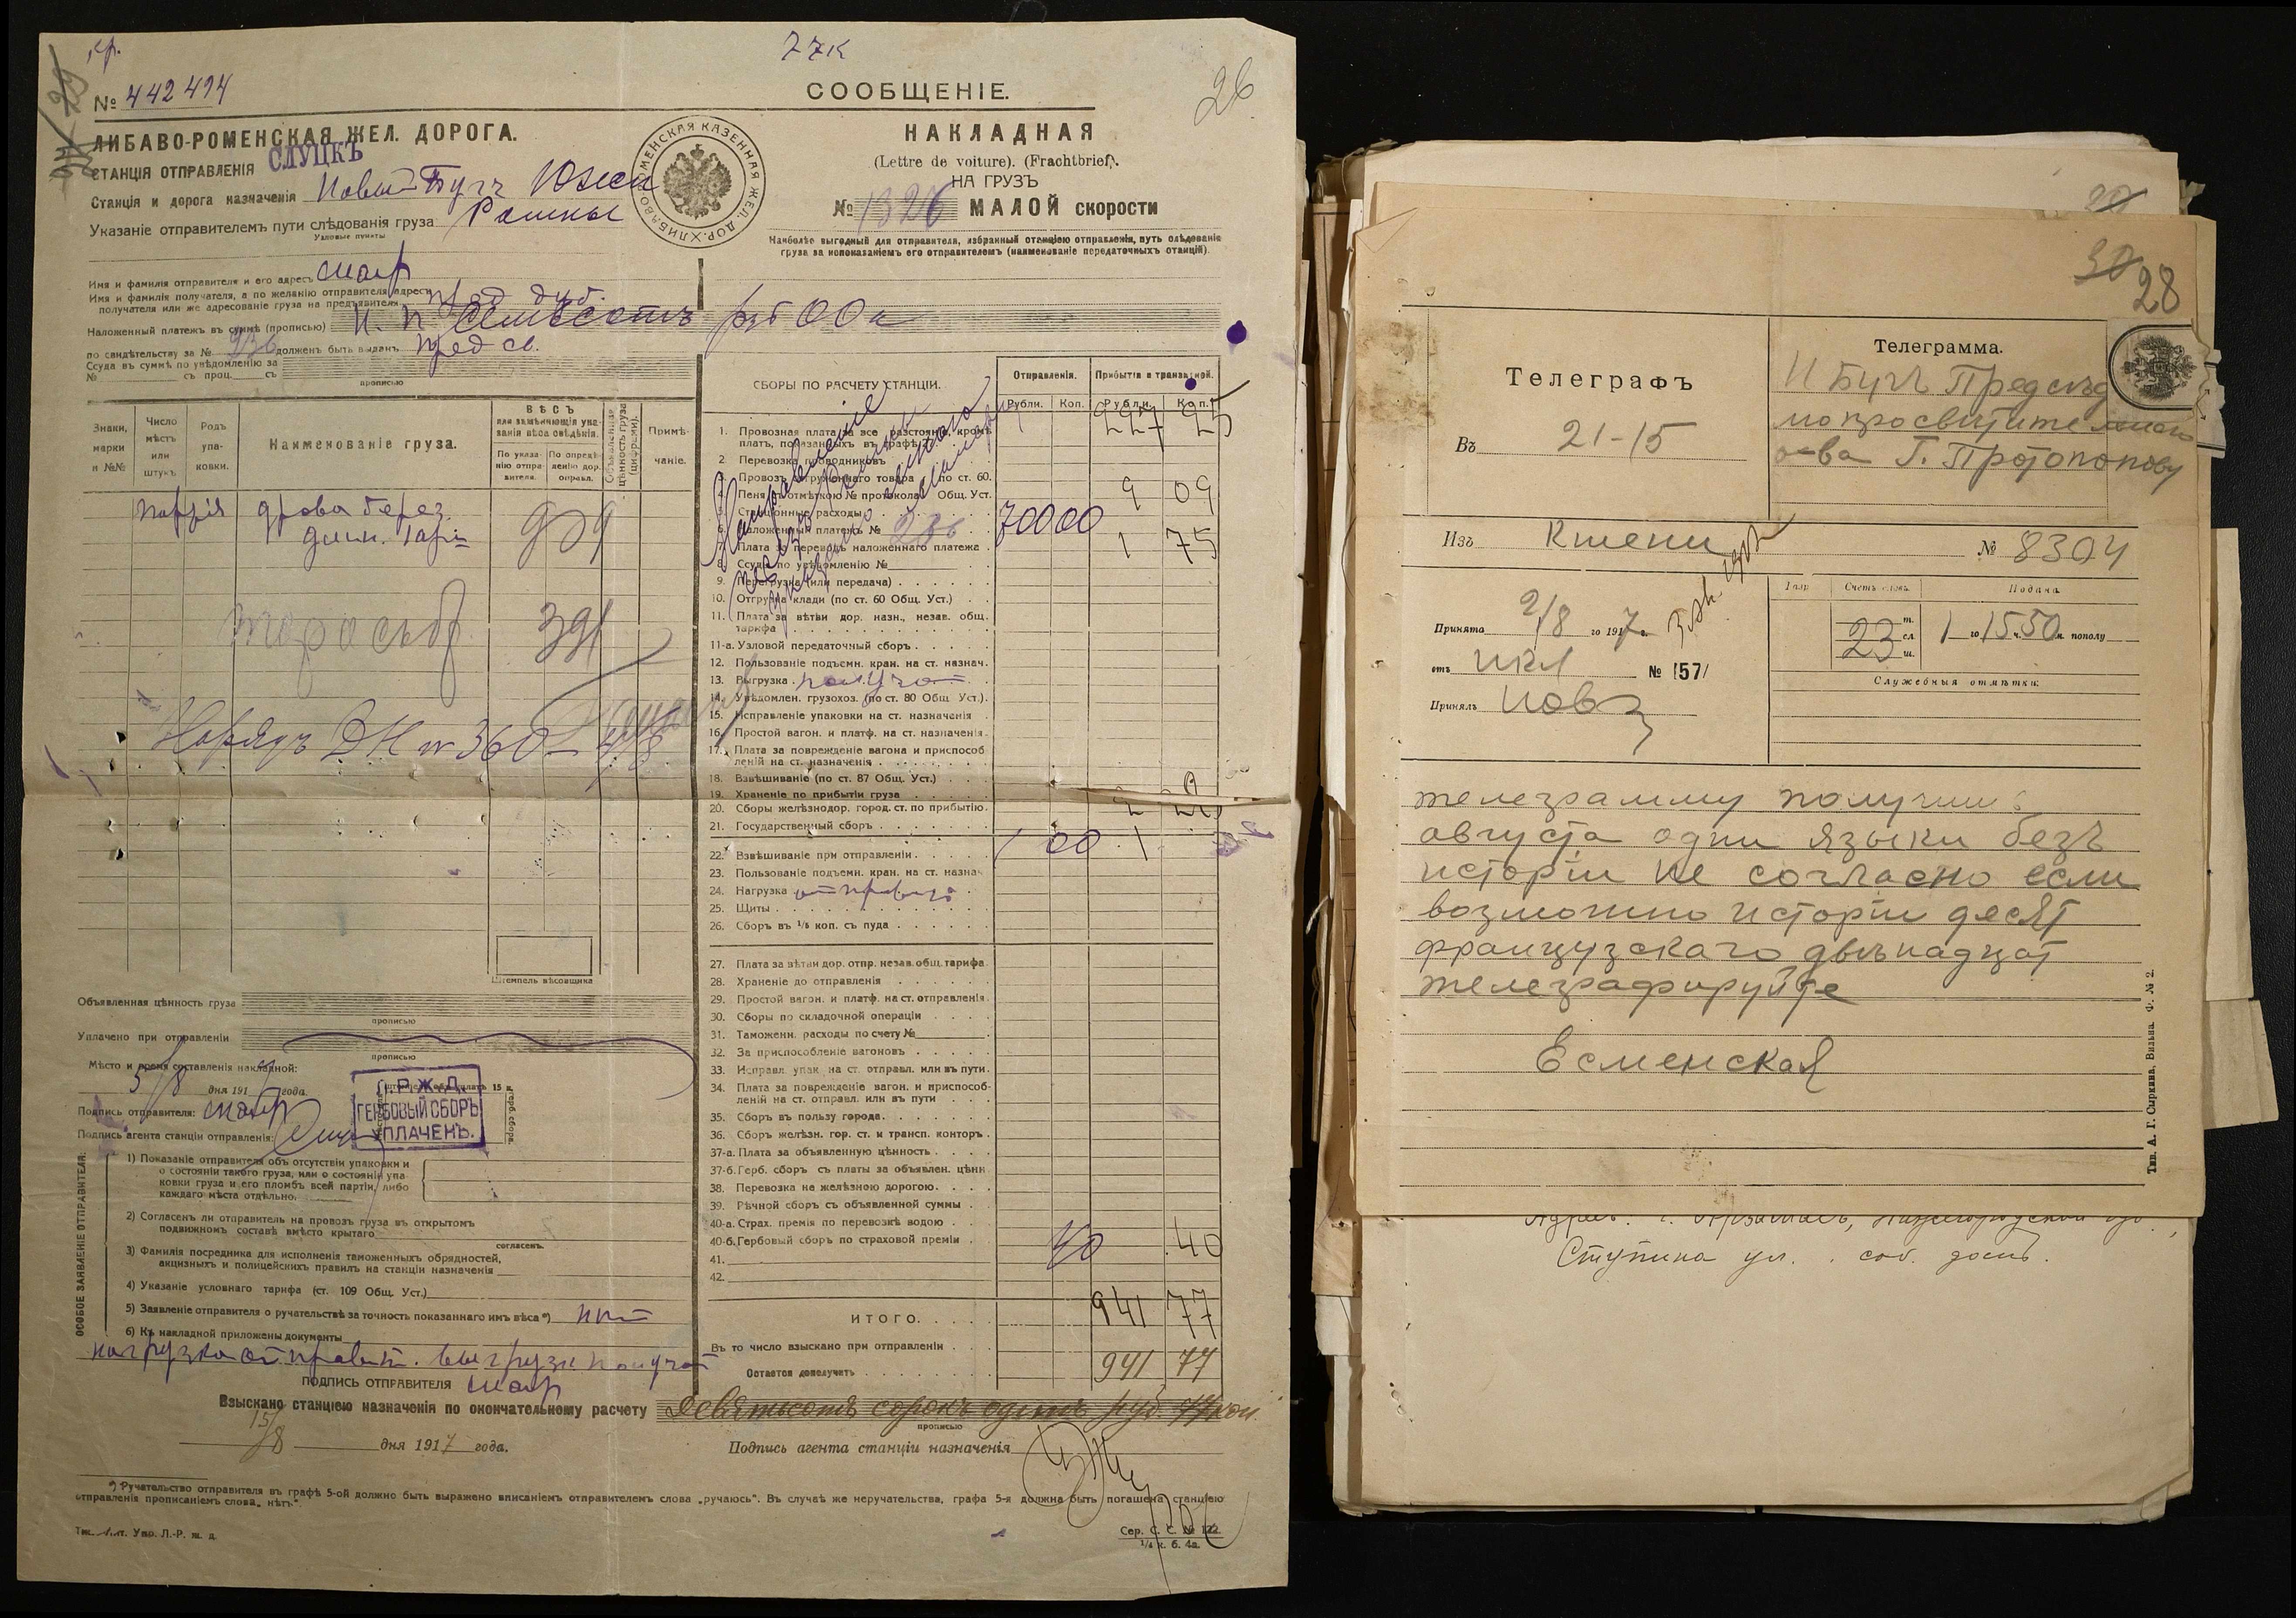 77к
26
№ 442414
СООБЩЕНІЕ.
ЛИБАВО-РОМЕНСКАЯ ЖЕЛ. ДОРОГА.
СТАНЦІЯ ОТПРАВЛЕНІЯ СЛУЦКЪ
Станція и дорога назначенія Новый Бугъ
Указаніе отправителемъ пути слѣдованія груза Ромны
Узловые пункты
НАКЛАДНАЯ
(Lettre de voiture). (Frachtbrief).
НА ГРУЗЪ
№ 1326 МАЛОЙ скорости
Наиболѣе выгодный для отправителя, избранный станціею отправленія, путь слѣдованія
груза за непоказаніемъ его отправителемъ (наименованіе передаточныхъ станцій).
Имя и фамилія отправителя и его адресъ
Имя и фамилія получателя, а по желанію отправителя, адресъ
получателя или же адресованіе груза на предъявителя
Наложенный платежъ въ суммѣ (прописью) Н. П. Семьсотъ руб 00 к
по свидѣтельству за № 236 долженъ быть выданъ пред св.
Ссуда въ суммѣ по увѣдомленію за
№ съ проц. съ
прописью
Знаки, марки и №№
Число мѣстъ или штукъ
Родъ упаковки.
Наименованіе груза.
ВѢСЪ
или замѣняющія указанія вѣса свѣдѣнія.
По указанію отправителя.
По опредѣленію дор. отправл.
Объявленная цѣнность груза (цифрами).
Примѣчаніе.
партія дрова берез.
Нарядъ ДН № 360
Штемпель вѣсовщика
СБОРЫ ПО РАСЧЕТУ СТАНЦІИ.
Отправленія. Прибытія и транзитной.
Рубли. Коп. Рубли. Коп.
1. Провозная плата за все разстояніе, кромѣ
платъ, показанныхъ въ графѣ 227 25
2. Перевозка проводниковъ
3. Провозъ отгруженнаго товара по ст. 60.
4. Пеня съ отмѣткою № протокола Общ. Уст. 9 09
5. Станціонные расходы
6. Наложенный платежъ № 236 70000
7. Плата за переводъ наложеннаго платежа 1 75
8. Ссуда по увѣдомленію №
9. Перегрузка (или передача)
10. Отгрузка клади (по ст. 60 Общ. Уст.)
11. Плата за вѣтви дор. назн., незав. общ.
тарифа
11-а. Узловой передаточный сборъ
12. Пользованіе подъемн. кран. на ст. назнач.
13. Выгрузка получат
14. Увѣдомлен. грузохоз. (по ст. 80 Общ. Уст.).
15. Исправленіе упаковки на ст. назначенія
16. Простой вагон. и платф. на ст. назначенія.
17. Плата за поврежденіе вагона и приспособленій на ст. назначенія
18. Взвѣшиваніе (по ст. 87 Общ. Уст.)
19. Храненіе по прибытіи груза
20. Сборы желѣзнодор. город. ст. по прибытію.
21. Государственный сборъ
22. Взвѣшиваніе при отправленіи
23. Пользованіе подъемн. кран. на ст. назнач
24. Нагрузка отправит
25. Щиты
26. Сборъ въ 1/8 коп. съ пуда
27. Плата за вѣтви дор. отпр. незав. общ. тарифа
28. Храненіе до отправленія
29. Простой вагон. и платф. на ст. отправленія.
30. Сборы по складочной операціи
31. Таможенн. расходы по счету №
32. За приспособленіе вагоновъ
33. Исправл. упак. на ст. отправл. или въ пути.
34. Плата за поврежденіе вагон. и приспособленій на ст. отправл. или въ пути
35. Сборъ въ пользу города
36. Сборъ желѣзн. гор. ст. и трансп. конторъ.
37-а. Плата за объявленную цѣнность
37-б. Герб. сборъ съ платы за объявлен. цѣнн
38. Перевозка не желѣзною дорогою.
39. Рѣчной сборъ съ объявленной суммы
40-а. Страх. премія по перевозкѣ водою
40-б. Гербовый сборъ по страховой преміи 40 40
41.
42.
ИТОГО 941 77
Въ то число взыскано при отправленіи
Остается дополучить 941 77
Объявленная цѣнность груза
прописью
Уплачено при отправленіи
прописью
Мѣсто и время составленія накладной:
5/8 дня 1917 года.
Подпись отправителя:
Подпись агента станціи отправленія:
Р.Ж.Д.
ГЕРБОВЫЙ СБОРЪ
УПЛАЧЕНЪ.
ОСОБОЕ ЗАЯВЛЕНІЕ ОТПРАВИТЕЛЯ:
1) Показаніе отправителя объ отсутствіи упаковки и
о состояніи такого груза, или о состояніи упаковки груза и его пломбъ всей партіи, либо
каждаго мѣста отдѣльно.
2) Согласенъ ли отправитель на провозъ груза въ открытомъ
подвижномъ составѣ вмѣсто крытаго
согласенъ.
3) Фамилія посредника для исполненія таможенныхъ обрядностей,
акцизныхъ и полицейскихъ правилъ на станціи назначенія
4) Указаніе условнаго тарифа (ст. 109 Общ. Уст.)
5) Заявленіе отправителя о ручательствѣ за точность показаннаго имъ вѣса *) нѣт
6) Къ накладной приложены документы
нагрузка отправит. выгрузк получат
ПОДПИСЬ ОТПРАВИТЕЛЯ
Взыскано станціею назначенія по окончательному расчету Девятьсотъ сорокъ одинъ руб. 77 коп.
прописью
15/8 дня 1917 года.
Подпись агента станціи назначенія
*) Ручательство отправителя въ графѣ 5-ой должно быть выражено вписаніемъ отправителемъ слова „ручаюсь“. Въ случаѣ же неручательства, графа 5-я должна быть погашена станціею
отправленія прописаніемъ слова „нѣтъ“.
Сер. С. С. № 122.
30 28
Телеграфъ
Въ 21-15
Телеграмма.
Н Бугъ Председ
мо просвѣтительнаго
о-ва Г. Протопопову
Изъ Кшени № 8304
Принята 2/8 го 1917 г.
отъ № 1571
Принялъ
Счетъ словъ.
23 сл.
Подача
1 го 15 ч. 50 м. пополу
Служебныя отмѣтки:
телеграмму получил
августа одни языки безъ
исторіи не согласно если
возможно исторіи десят
французскаго двѣнадцат
телеграфируйте
Есменская
Тип. А. Г. Сыркина, Вильна. Ф. № 2.
Ступина ул. соб. домъ.